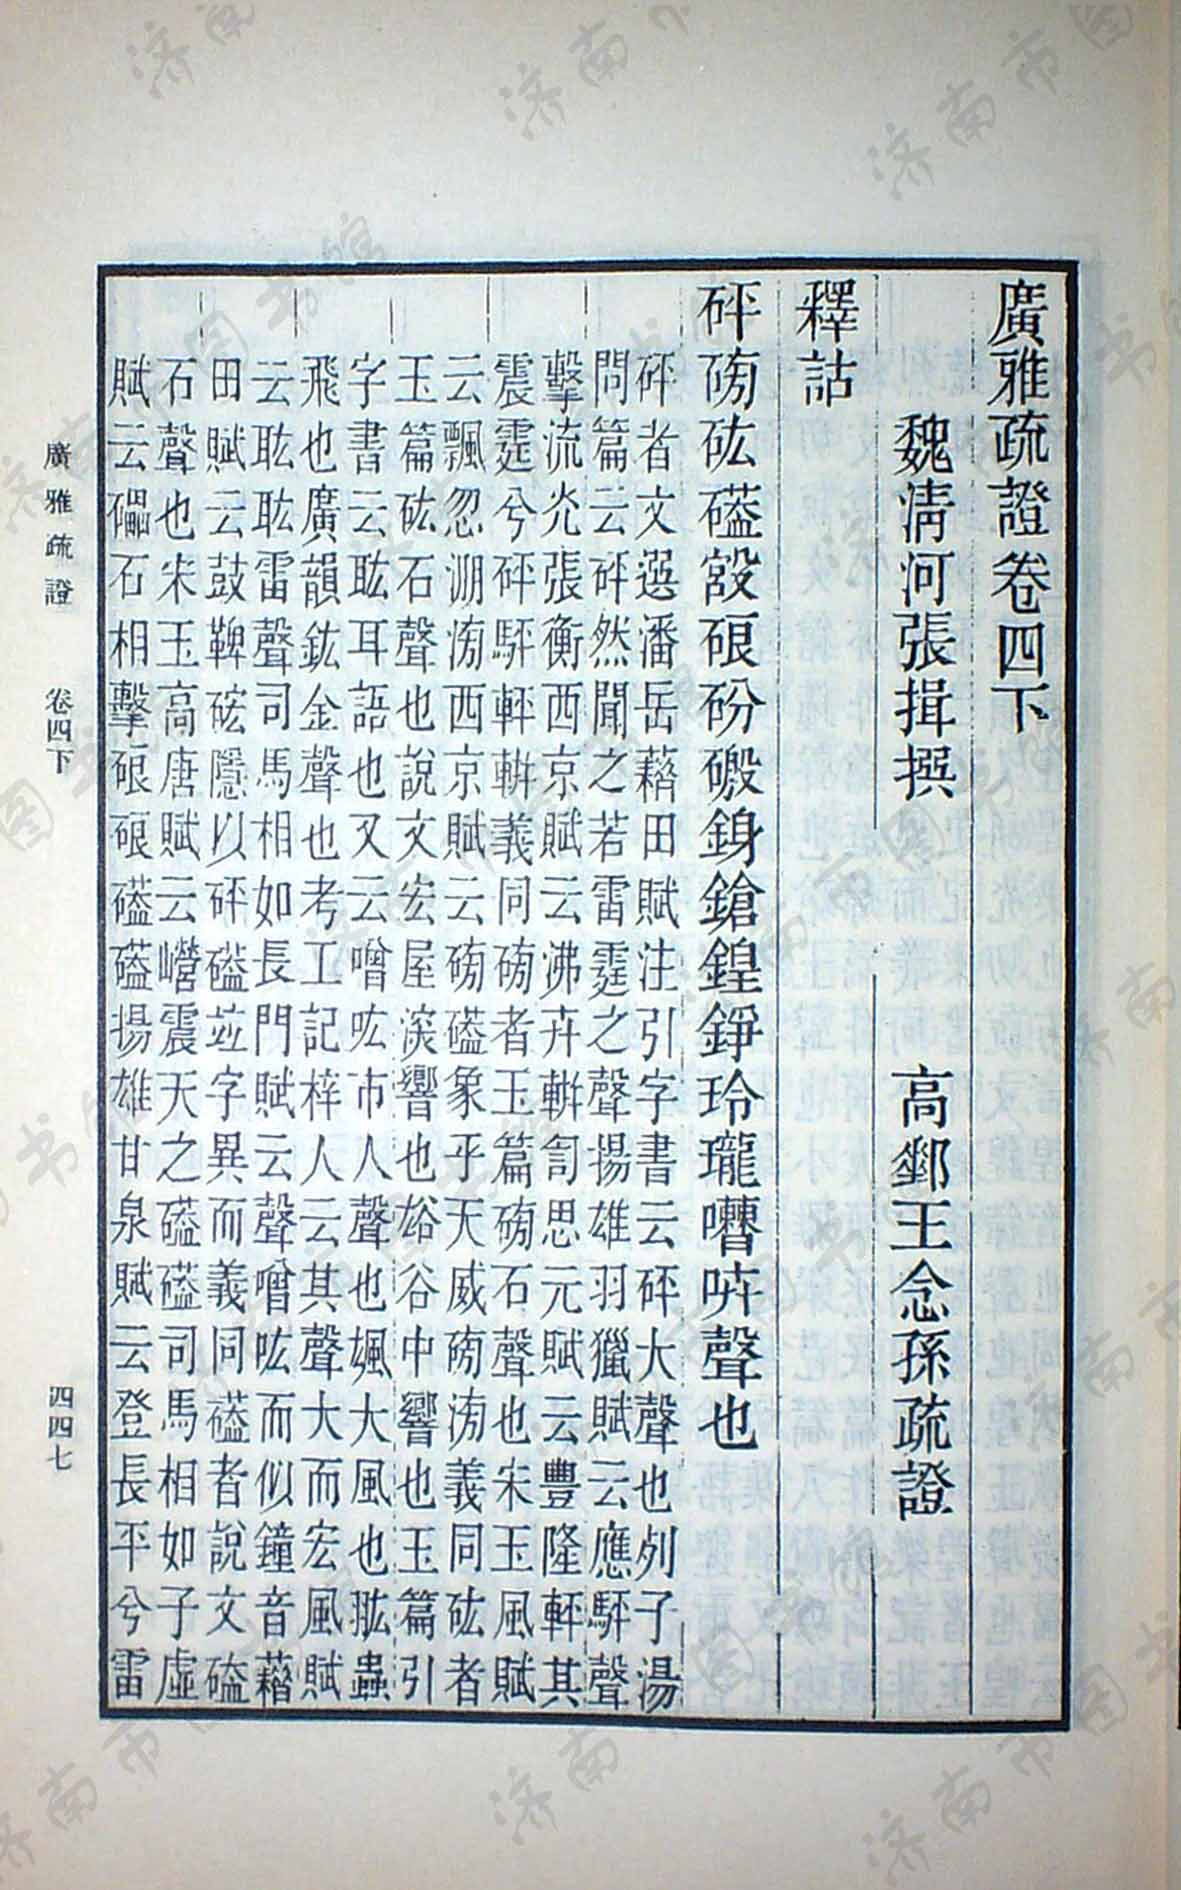 廣雅疏證卷四下
魏清河張揖撰　高郵王念孫疏證
釋詁
砰磅砿磕㲉硠砏磤鍧鎗鍠錚玲瓏嘈㕸聲也
砰者文選潘岳藉田賦注引字書云砰大聲也列子湯
問篇云砰然聞之若雷霆之聲揚雄羽獵賦云應駍聲
擊流光張衡西京賦云沸卉軿訇思元賦云豐隆軯其
震霆兮砰駍軯軿義同磅者玉篇磅石聲也宋玉風賦
云飄忽淜滂西京賦云磅磕象乎天威磅滂義同砿者
玉篇砿石聲也說文宏屋深響也𧮯谷中響也玉篇引
字書云耾耳語也又云噌吰市人聲也颯大風也䡌蟲
飛也廣韻鈜金聲也考工記梓人云其聲大而宏風賦
云耾耾雷聲司馬相如長門賦云聲噌吰而似鐘音藉
田賦云鼓鞞硡隱以砰磕竝字異而義同磕者說文磕
石聲也宋玉高唐賦云㠛震天之磕磕司馬相如子虛
賦云礧石相擊硠硠磕磕揚雄甘泉賦云登長平兮雷
廣雅疏證　卷四下　四四七
濟南市图书馆